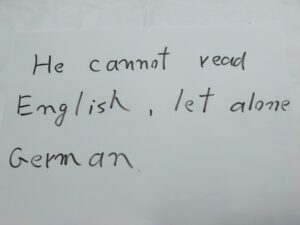 He cannot read
English, let alone
German.